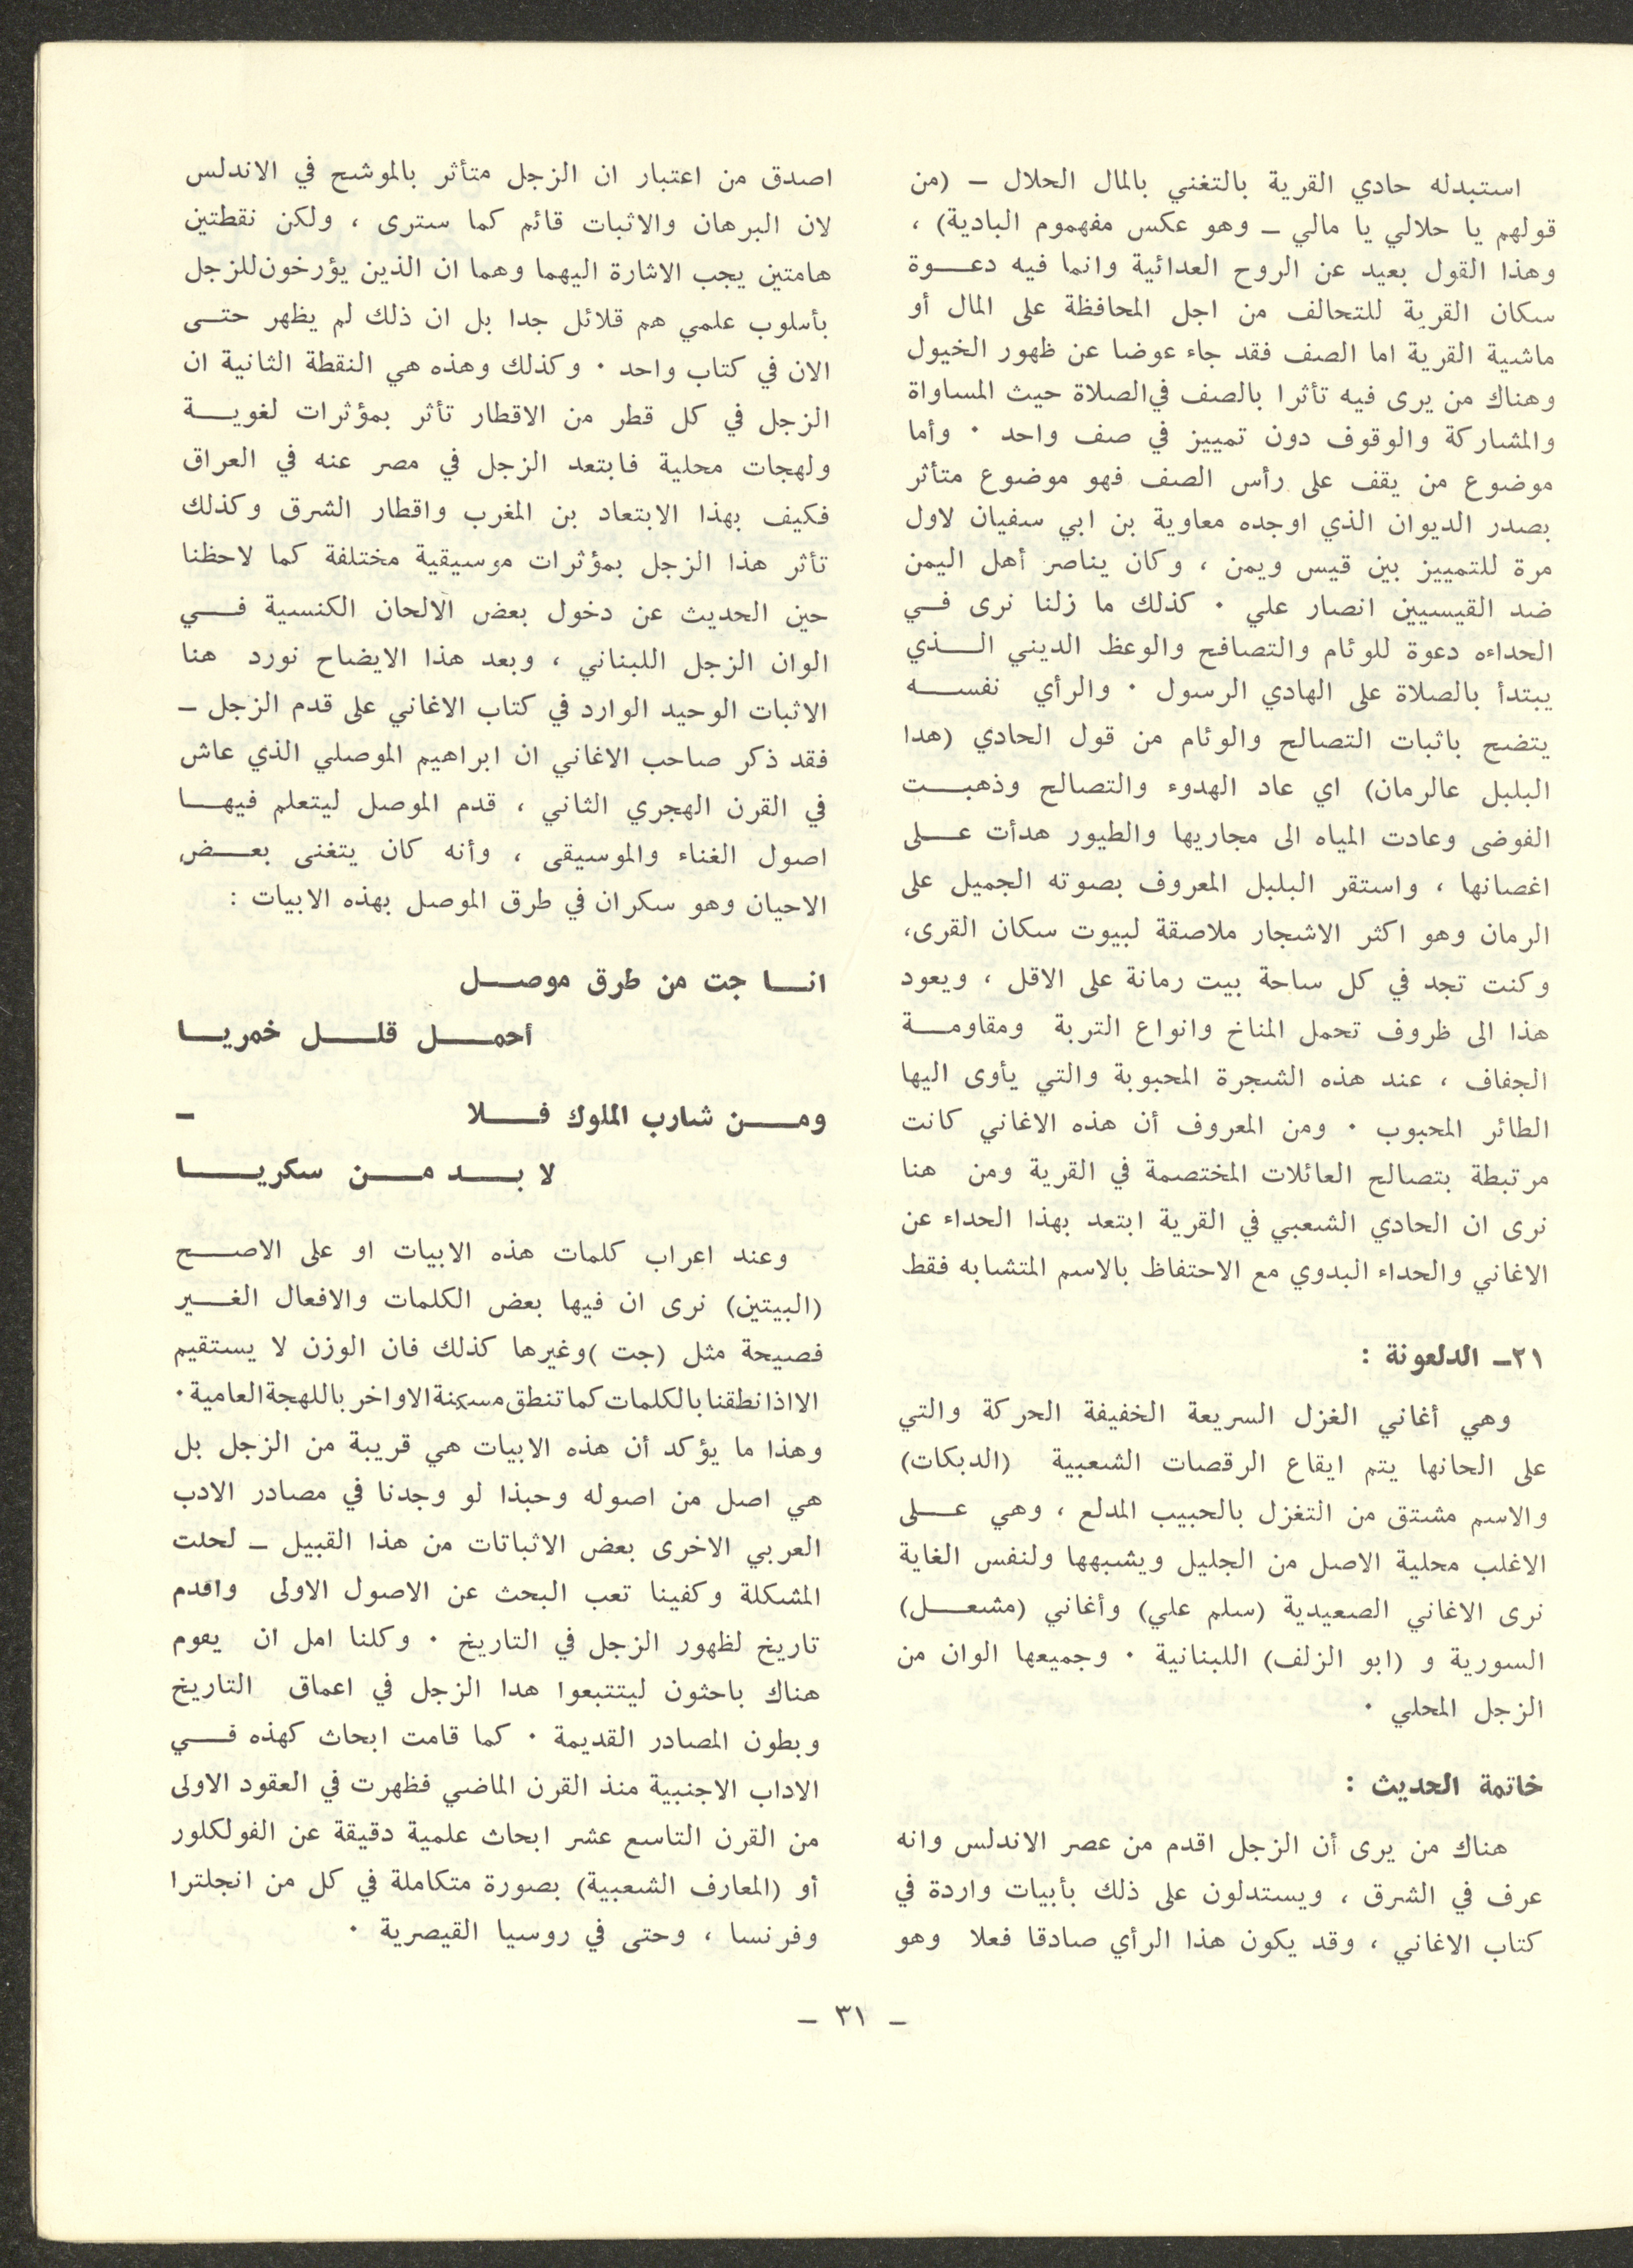 استبدله حادي القرية بالتغني بالمال الحلال – (من
قولهم يا حلالي يا مالي – وهو عكس مفهموم البادية) ،
وهذا القول بعيد عن الروح العدائية وانما فيه دعوة
سكان القرية للتحالف من اجل المحافظة على المال أو
ماشية القرية اما الصف فقد جاء عوضا عن ظهور الخيول
وهناك من يرى فيه تأثرا بالصف في الصلاة حيث المساواة
والمشاركة والوقوف دون تمييز في صف واحد . وأما
موضوع من يقف على رأس الصف فهو موضوع متأثر
بصدر الديوان الذي اوجده معاوية بن ابي سفيان لاول
مرة للتمييز بين قيس ويمن ، وكان يناصر أهل اليمن
ضد القيسيين انصار علي . كذلك ما زلنا نرى في
الحداءه دعوة للوئام والتصافح والوعظ الديني الذي
يبتدأ بالصلاة على الهادي الرسول . والرأي نفسه
يتضح باثبات التصالح والوئام من قول الحادي (هدا
البلبل عالرمان) اي عاد الهدوء والتصالح وذهبت
الفوضى وعادت المياه الى مجاريها والطيور هدأت على
اغصانها ، واستقر البلبل المعروف بصوته الجميل على
الرمان وهو اكثر الاشجار ملاصقة لبيوت سكان القرى،
وكنت تجد في كل ساحة بيت رمانة على الاقل ، ويعود
هذا الى ظروف تحمل المناخ وانواع التربة ومقاومة
الجفاف ، عند هذه الشجرة المحبوبة والتي يأوى اليها
الطائر المحبوب . ومن المعروف أن هذه الاغاني كانت
مرتبطة بتصالح العائلات المختصمة في القرية ومن هنا
نرى ان الحادي الشعبي في القرية ابتعد بهذا الحداء عن
الاغاني والحداء البدوي مع الاحتفاظ بالاسم المتشابه فقط
٢١– الدلعونة :
وهي أغاني الغزل السريعة الخفيفة الحركة والتي
على الحانها يتم ايقاع الرقصات الشعبية (الدبكات)
والاسم مشتق من التغزل بالحبيب المدلع ، وهي على
الاغلب محلية الاصل من الجليل ويشبهها ولنفس الغاية
نرى الاغاني الصعيدية (سلم علي) وأغاني (مشعل)
السورية و (ابو الزلف) اللبنانية . وجميعها الوان من
الزجل المحلي .
خاتمة الحديث :
هناك من يرى أن الزجل اقدم من عصر الاندلس وانه
عرف في الشرق ، ويستدلون على ذلك بأبيات واردة في
كتاب الاغاني ، وقد يكون هذا الرأي صادقا فعلا وهو
اصدق من اعتبار ان الزجل متأثر بالموشح في الاندلس
لان البرهان والاثبات قائم كما سترى ، ولكن نقطتين
هامتين يجب الاشارة اليهما وهما ان الذين يؤرخون للزجل
بأسلوب علمي هم قلائل جدا بل ان ذلك لم يظهر حتى
الان في كتاب واحد . وكذلك وهذه هي النقطة الثانية ان
الزجل في كل قطر من الاقطار تأثر بمؤثرات لغوية
ولهجات محلية فابتعد الزجل في مصر عنه في العراق
فكيف بهذا الابتعاد بن المغرب واقطار الشرق وكذلك
تأثر هذا الزجل بمؤثرات موسيقية مختلفة كما لاحظنا
حين الحديث عن دخول بعض الالحان الكنسية في
الوان الزجل اللبناني ، وبعد هذا الايضاح نورد هنا
الاثبات الوحيد الوارد في كتاب الاغاني على قدم الزجل –
فقد ذكر صاحب الاغاني ان ابراهيم الموصلي الذي عاش
في القرن الهجري الثاني ، قدم الموصل ليتعلم فيها
اصول الغناء والموسيقى ، وأنه كان يتغنى بعض
الاحيان وهو سكران في طرق الموصل بهذه الابيات :
انا جت من طرق موصل
أحمل قلل خمريا
ومن شارب الملوك فلا –
لا بد من سكريا
وعند اعراب كلمات هذه الابيات او على الاصح
(البيتين) نرى ان فيها بعض الكلمات والافعال الغير
فصيحة مثل (جت) وغيرها كذلك فان الوزن لا يستقيم
الا اذا نطقنا بالكلمات كما تنطق مسكنة الاواخر باللهجة العامية .
وهذا ما يؤكد أن هذه الابيات هي قريبة من الزجل بل
هي اصل من اصوله وحبذا لو وجدنا في مصادر الادب
العربي الاخرى بعض الاثباتات من هذا القبيل – لحلت
المشكلة وكفينا تعب البحث عن الاصول الاولى واقدم
تاريخ لظهور الزجل في التاريخ . وكلنا امل ان يقوم
هناك باحثون ليتتبعوا هدا الزجل في اعماق التاريخ
وبطون المصادر القديمة . كما قامت ابحاث كهذه في
الاداب الاجنبية منذ القرن الماضي فظهرت في العقود الاولى
من القرن التاسع عشر ابحاث علمية دقيقة عن الفولكلور
أو (المعارف الشعبية) بصورة متكاملة في كل من انجلترا
وفرنسا ، وحتى في روسيا القيصرية .
– ٣١ –